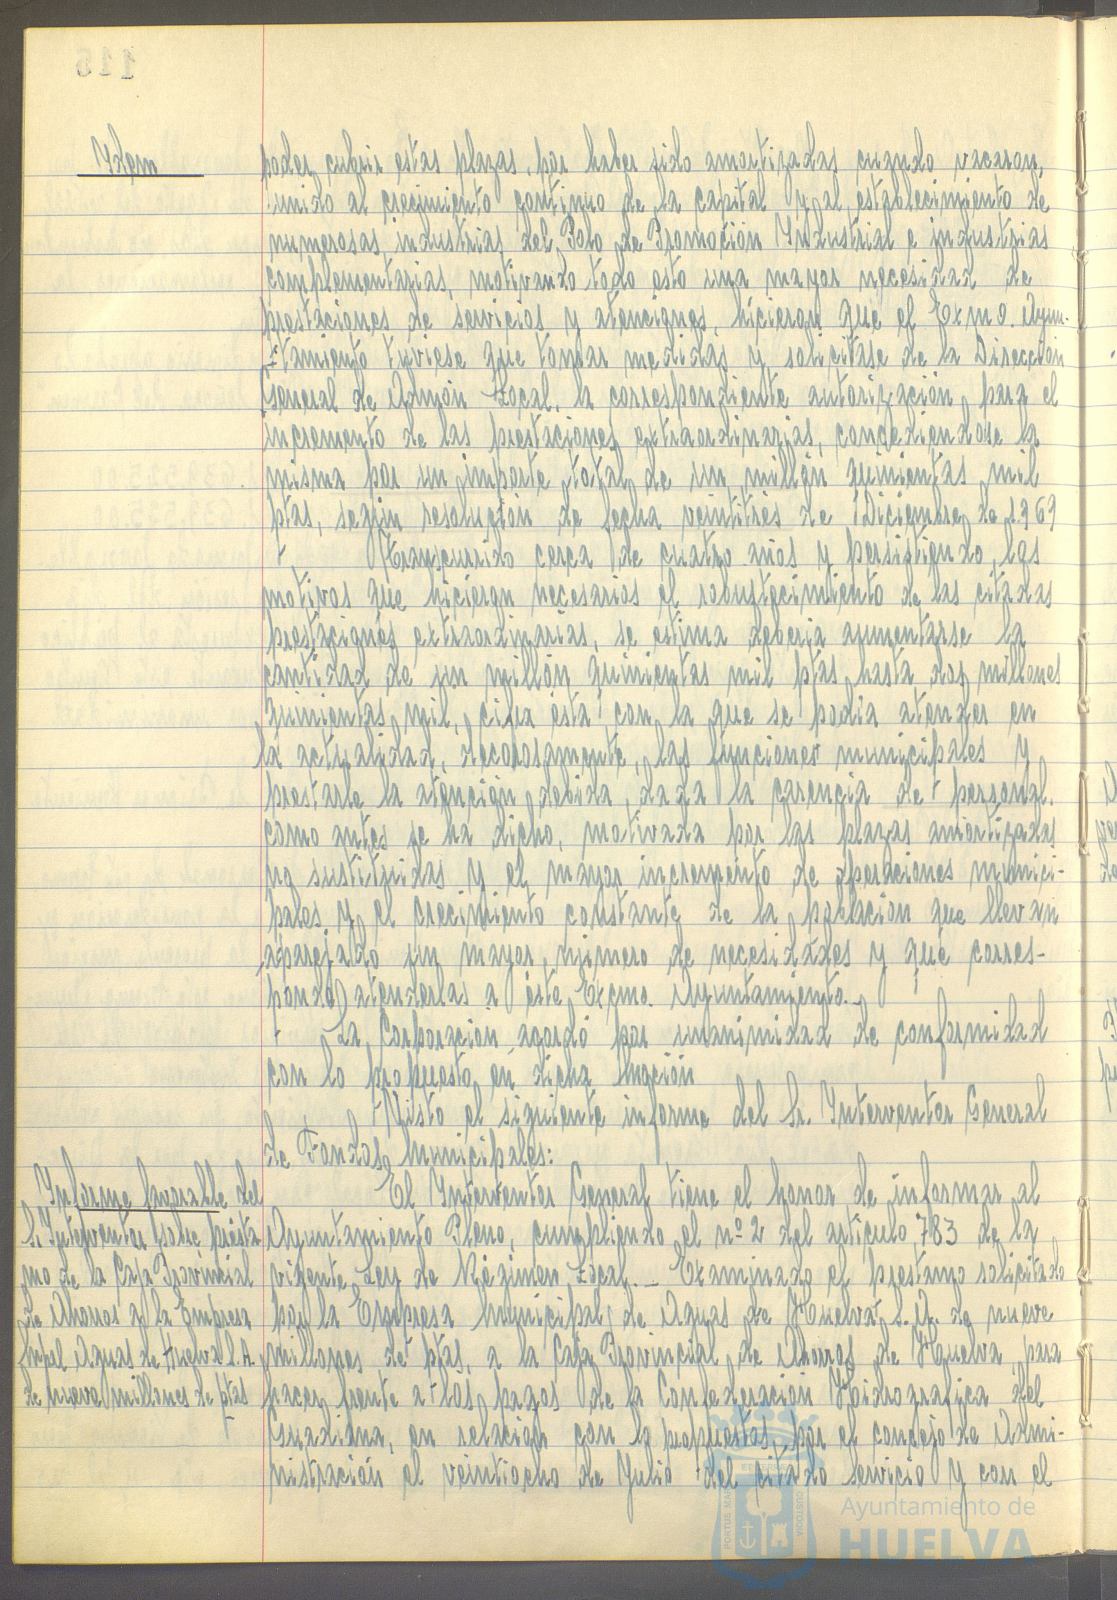 Idem
poder cubrir estas plazas, por haber sido amortizadas cuando vacaron,
unido al crecimiento continuo de la capital y al establecimiento de
numerosas industrias del Polo de Promoción Industrial e industrias
complementarias, motivando todo esto una mayor necesidad de
prestaciones de servicios y atenciones, hicieron que el Exmo. Ayun-
tamiento tuviese que tomar medidas y solicitase de la Dirección
General de Admón Local, la correspondiente autorización para el
incremento de las prestaciones extraordinarias, concediendose la
misma por un importe total de un millón quinientas mil
ptas, según resolución de fecha veintitrés de Diciembre de 1969
Transcurrido cerca de cuatro años y persistiendo los
motivos que hicieron necesarios el robustecimiento de las citadas
prestaciones extraordinarias, se estima debería aumentarse la
cantidad de un millón quinientas mil ptas hasta dos millones
quinientas mil, cifra ésta con la que se podía atender en
la actualidad, decorosamente, las funciones municipales y
prestarle la atención debida, dada la carencia de personal,
como antes se ha dicho, motivada por las plazas amortizadas
no sustituidas y el mayor incremento de operaciones munici-
pales y el crecimiento constante de la población que llevan
aparejado un mayor número de necesidades y que corres-
ponde atenderlas a éste Excmo. Ayuntamiento.
La Corporación acordó por unanimidad de conformidad
con lo propuesto en dicha Moción
Visto el siguiente informe del Sr. Interventor General
de Fondos Municipales:
Informe favorable del
Sr. Interventor sobre présta
mo de la Caja Provincial
de Ahorros a la Empresa
Mpal Aguas de Huelva S.A.
de nueve millones de ptas
El Interventor General tiene el honor de informar al
Ayuntamiento Pleno, cumpliendo el nº 2 del artículo 783 de la
vigente Ley de Régimen Local._ Examinado el prestamo solicitado
por la Empresa Municipal de Aguas de Huelva S.A. de nueve
millones de ptas, a la Caja Provincial de Ahorros de Huelva para
hacer frente a los pagos de la Confederación Hidrografica del
Guadiana, en relación con la propuestas, por el concejo de Admi-
nistración el veintiocho de Julio del citado Servicio y con el
Ayuntamiento de
HUELVA